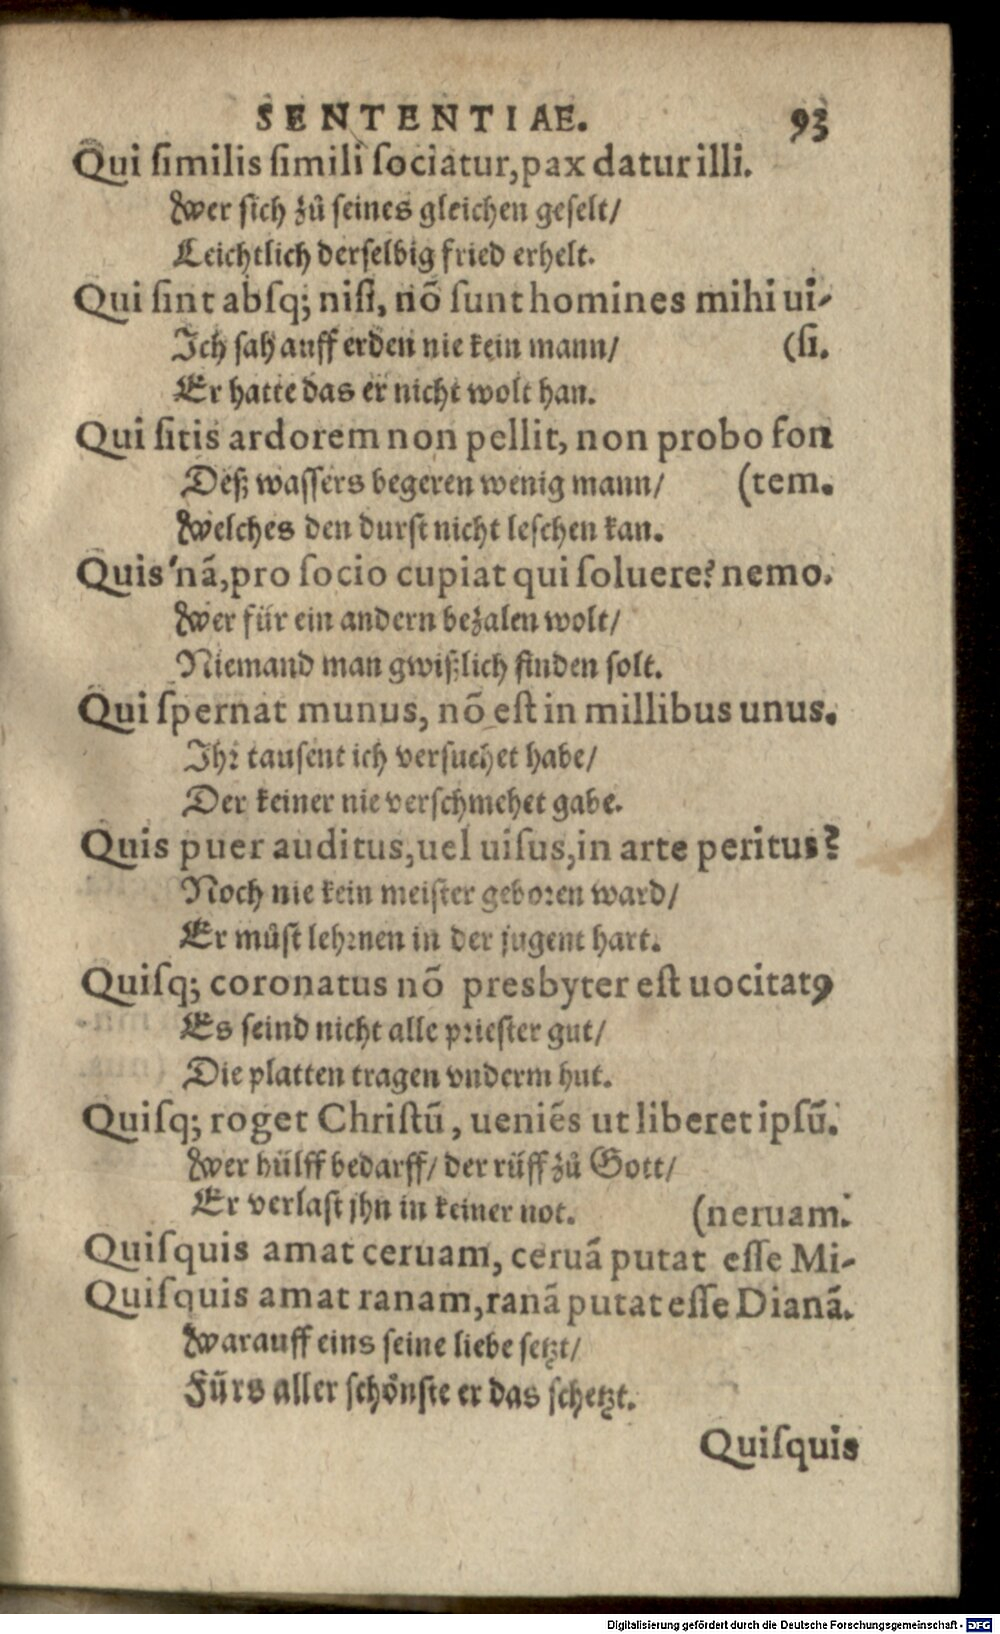 SENTENTIAE. 93
Qui ſimilis ſimili ſociatur, pax datur illi.
Wer ſich zů ſeines gleichen geſelt/
Leichtlich derſelbig fried erhelt.
Qui ſint abſq; niſi, nō ſunt homines mihi ui-
Ich ſah auff erden nie kein mann/ (ſi.
Er hatte das er nicht wolt han.
Qui ſitis ardorem non pellit, non probo fon
Deß waſſers begeren wenig mann/ (tem.
Welches den durſt nicht leſchen kan.
Quis'nā, pro ſocio cupiat qui ſoluere? nemo.
Wer für ein andern bezalen wolt/
Niemand man gwißlich finden ſolt.
Qui ſpernat munus, nō eſt in millibus unus.
Ihꝛ tauſent ich verſuchet habe/
Der keiner nie verſchmehet gabe.
Quis puer auditus, uel uiſus, in arte peritus?
Noch nie kein meiſter geboꝛen ward/
Er můſt lehꝛnen in der jugent hart.
Quiſq; coronatus nō presbyter eſt uocitatꝰ
Es ſeind nicht alle pꝛieſter gut/
Die platten tragen vnderm hut.
Quiſq; roget Chriſtū, ueniēs ut liberet ipſū.
Wer hülff bedarff/ der rüff zů Gott/
Er verlaſt jhn in keiner not. (neruam.
Quiſquis amat ceruam, ceruā putat eſſe Mi-
Quiſquis amat ranam, ranā putat eſſe Dianā.
Warauff eins ſeine liebe ſetzt/
Fürs aller ſchönſte er das ſchetzt.
Quiſquis
Digitalisierung gefördert durch die Deutsche Forschungsgemeinschaft - DFG